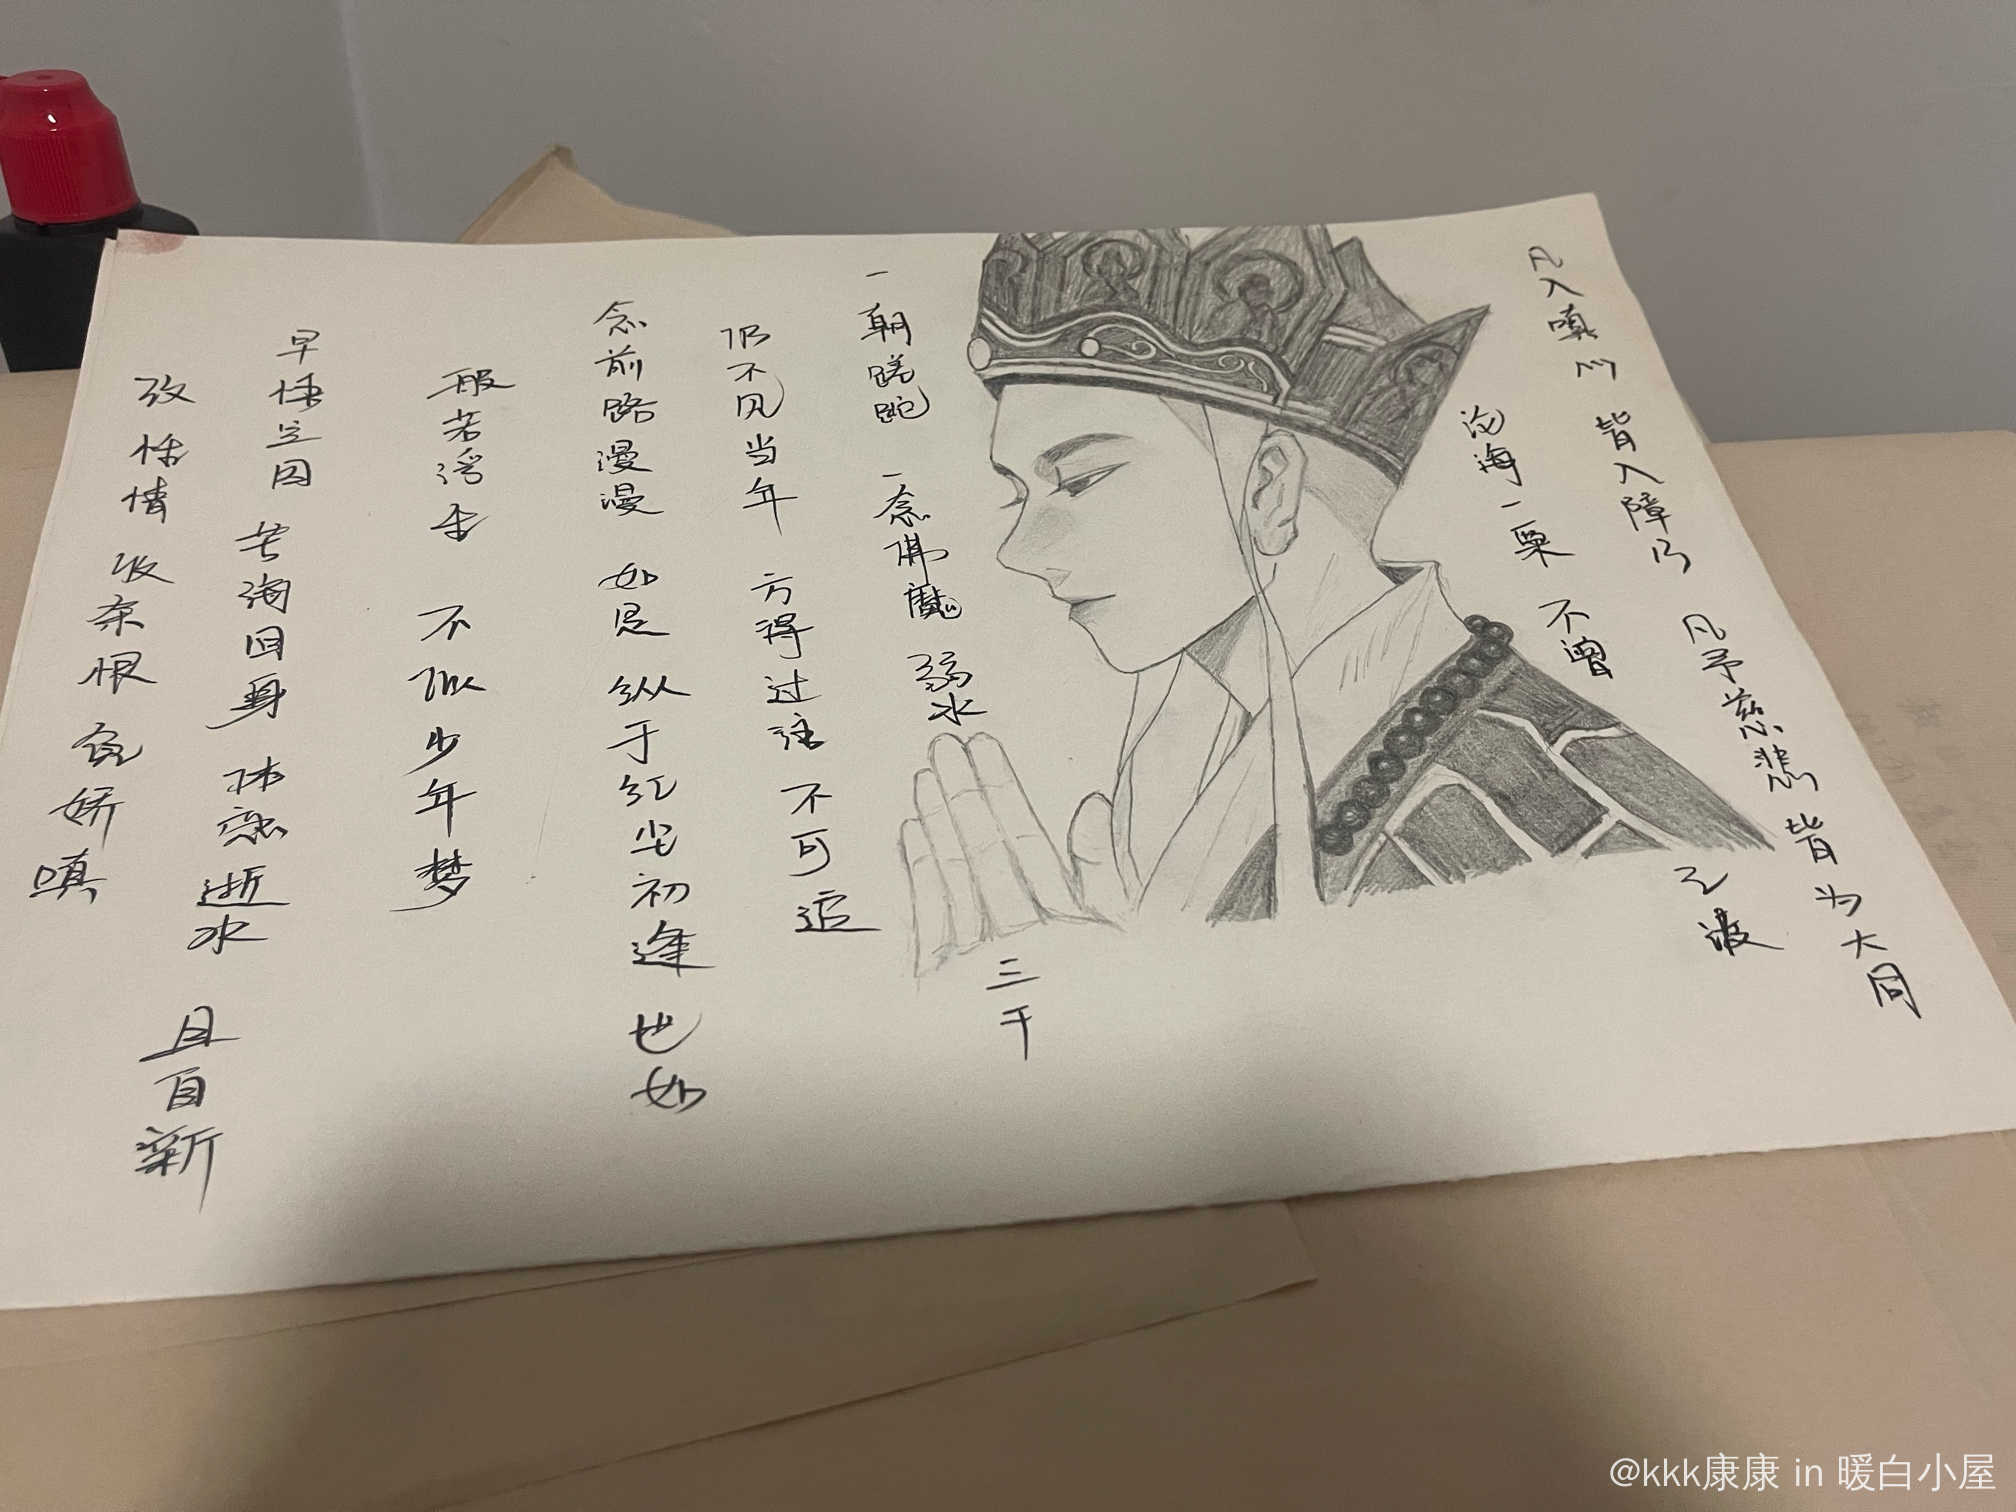 凡入嗔心 皆入障门 凡予慈悲 皆为大同
沧海一粟 不曾 渡
一朝蹉跎 一念佛魔 弱水 三千
仍不见当年 方得过往 不可追
念前路漫漫 如是 纵于红尘初逢 也如
般若浮生 不似少年梦
早悟兰因 苦海回身 休恋逝水 且自新
改性情 收余恨 免娇嗔
@kkk康康 in 暖白小屋